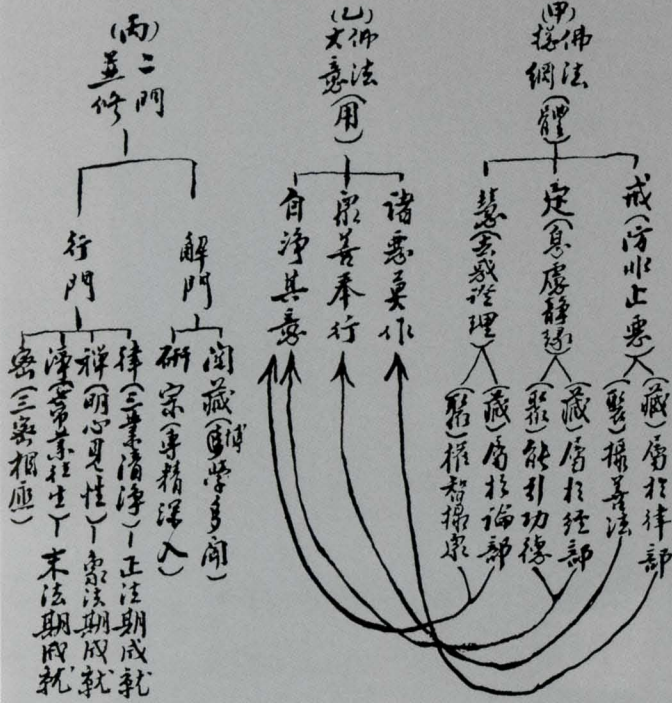 (甲)佛法總綱(體)
戒(防非止惡)
(藏)屬於律部
(聚)攝善法
定(息慮靜緣)
(藏)屬於經部
(聚)能引功德
慧(去惑證理)
(藏)屬於論部
(聚)權智攝衆
(乙)佛法大意(用)
諸惡莫作
衆善奉行
自淨其意
(丙)二門並修
解門
閱藏(博學多聞)
研宗(專精深入)
行門
律(三業清淨)—正法期成就
禅(明心見性)—象法期成就
淨(帶業往生)—末法期成就
密(三密相應)